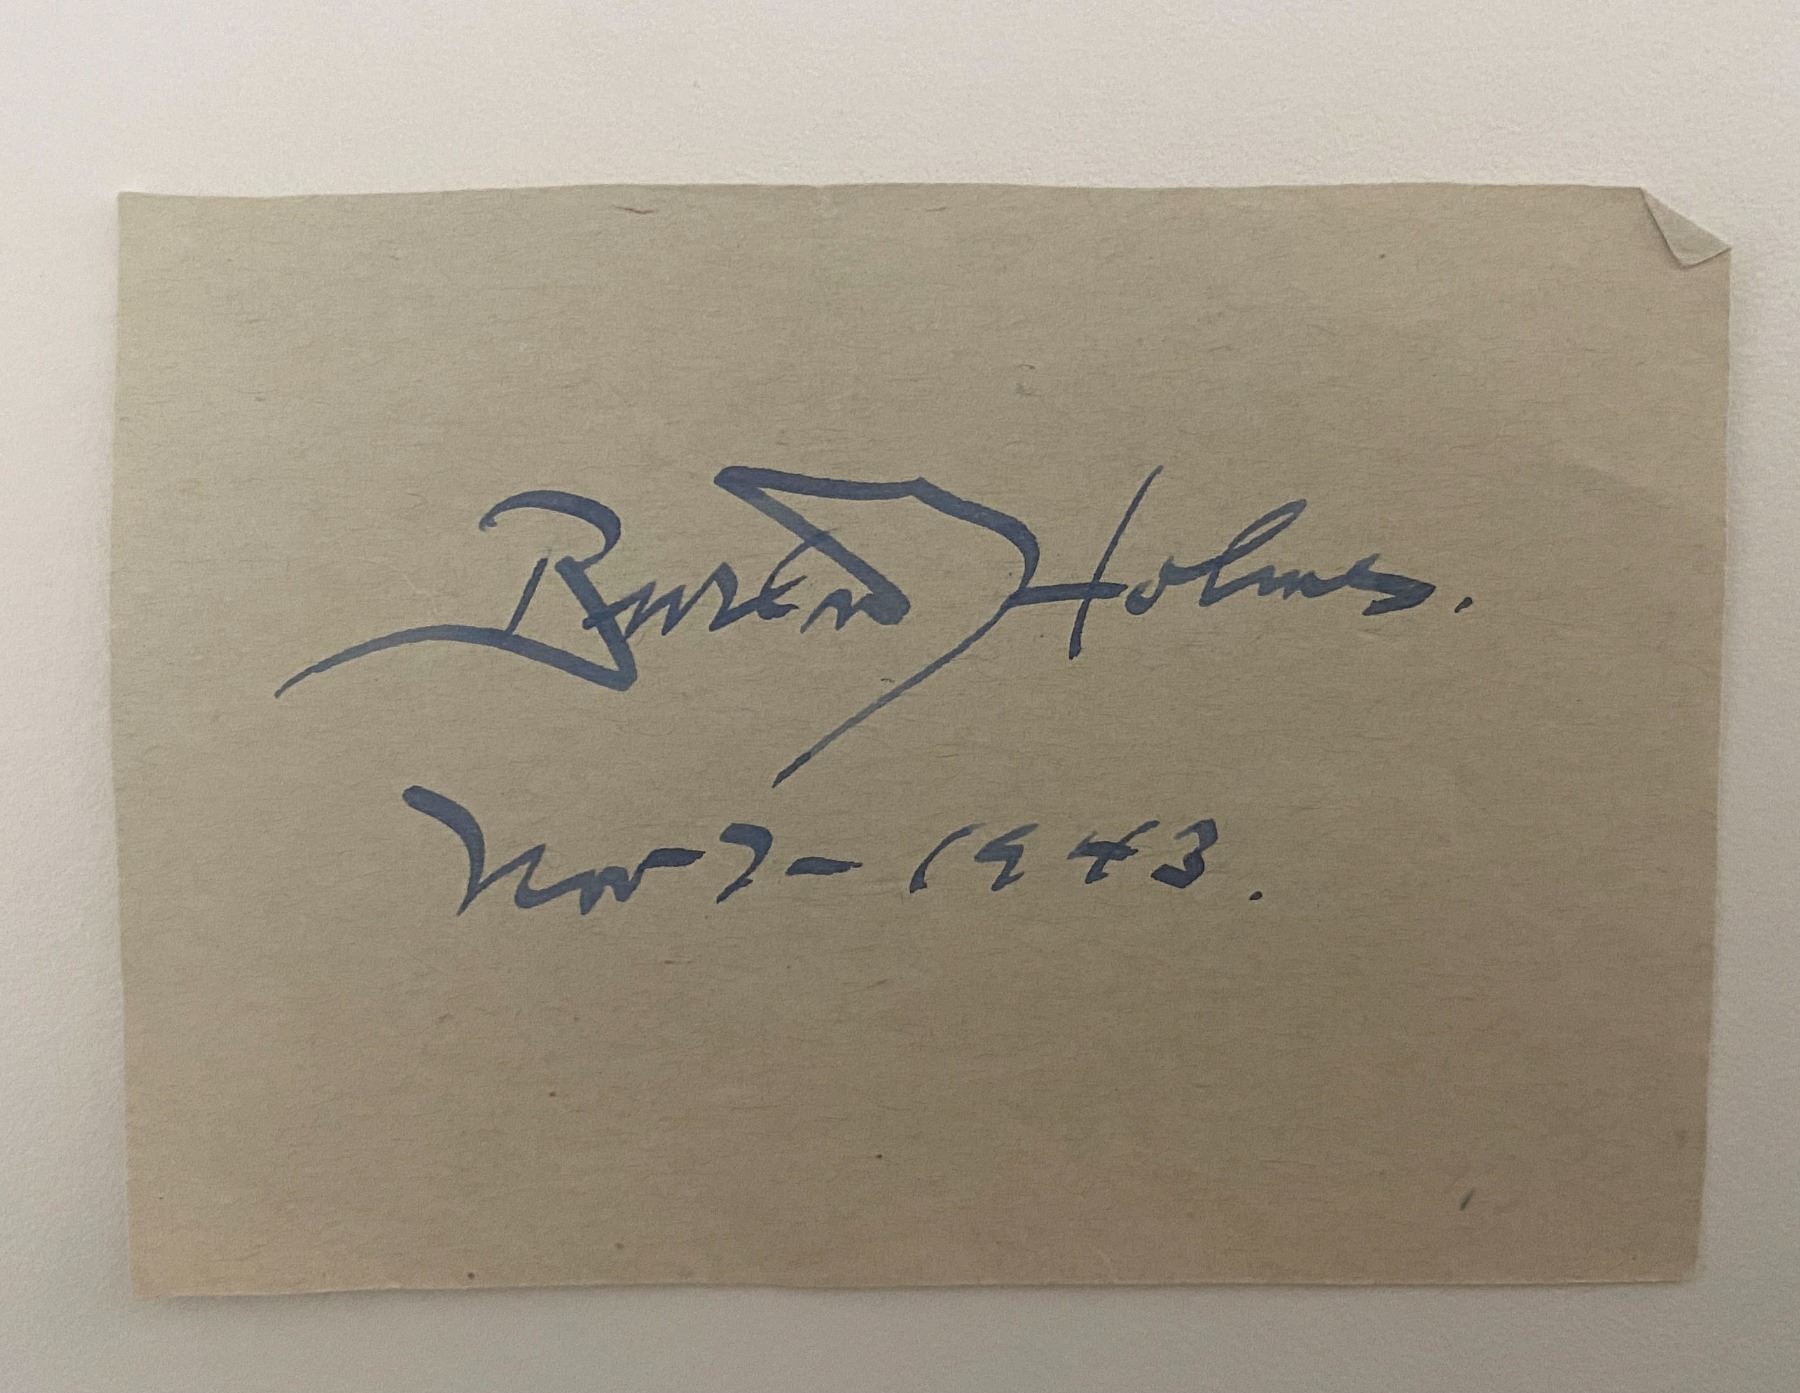 Burton Holmes.
Nov-7-1943.